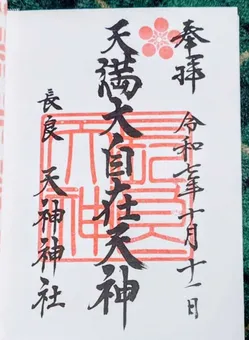 奉拝
令和七年十月十一日
天満大自在天神
長良 天神神社